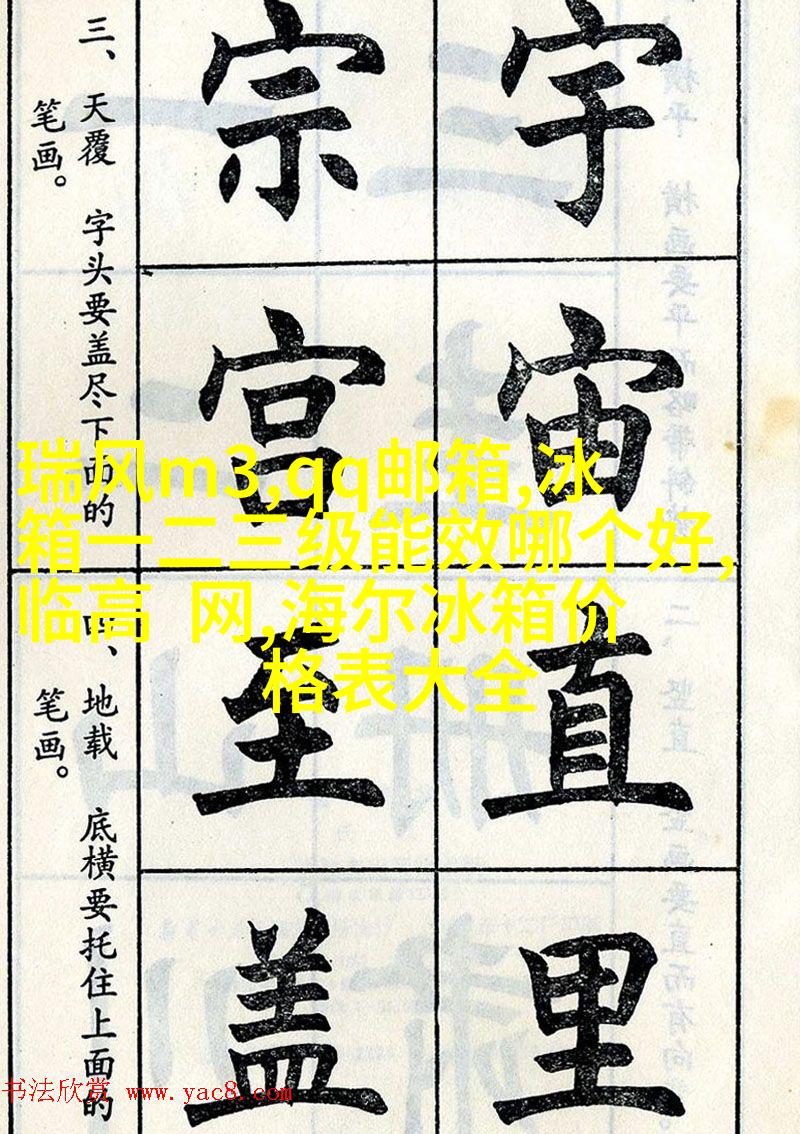 三、天覆 字头要盖尽下面的
笔画。
宗 宇
宫 宙
四、地载 底横要托住上面的
笔画。
至 直
盖 里
瑞风m3,qq邮箱,冰
箱一二三级能效哪个好,
临高 网,海尔冰箱价
格表大全
书法欣赏 www.yac8.com